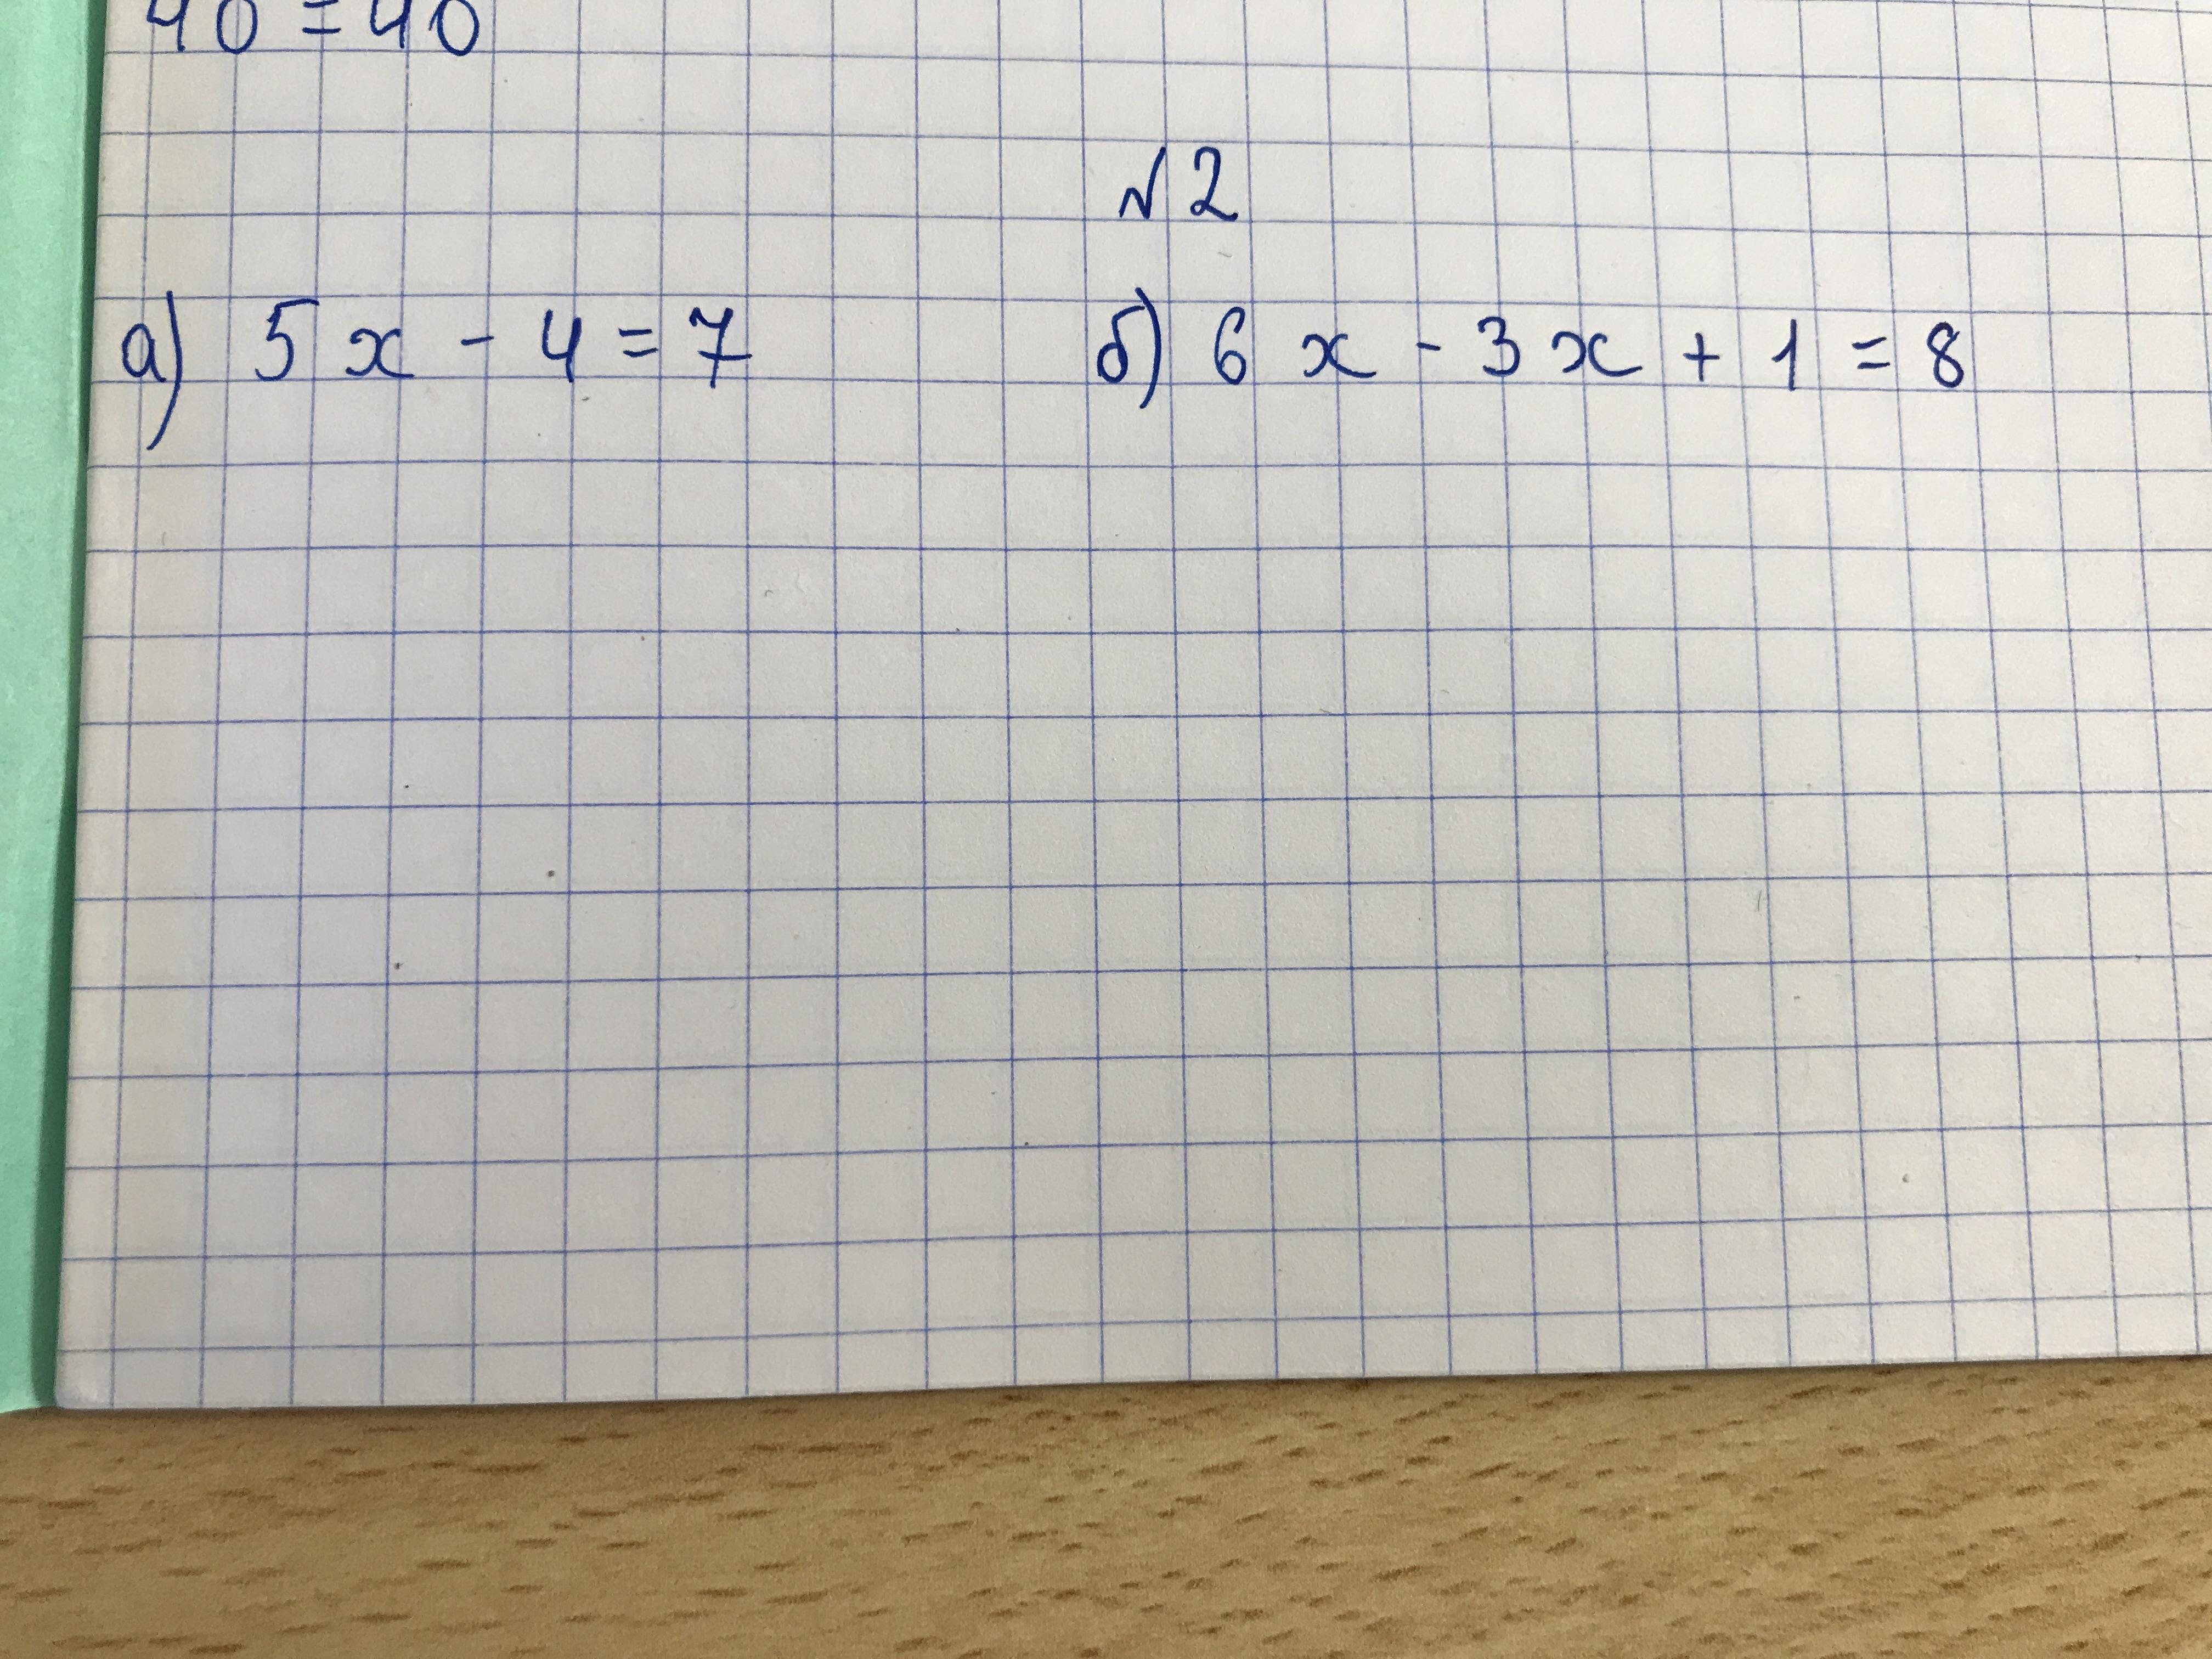 40 = 40
№ 2
а) 5x - 4 = 7 б) 6x - 3x + 1 = 8